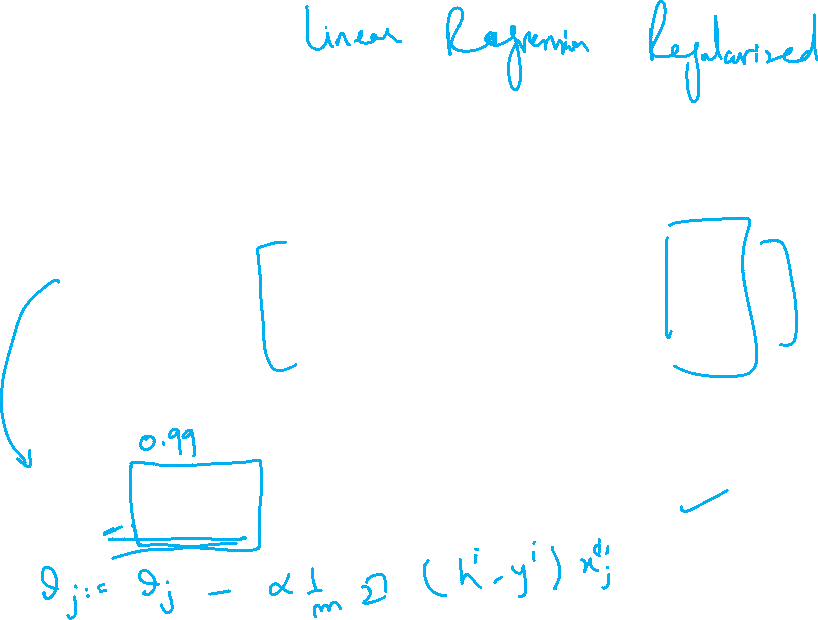 Linear Regression Regularized
0.99
θj := θj - α 1/m Σ (hⁱ - yⁱ) xⁱj